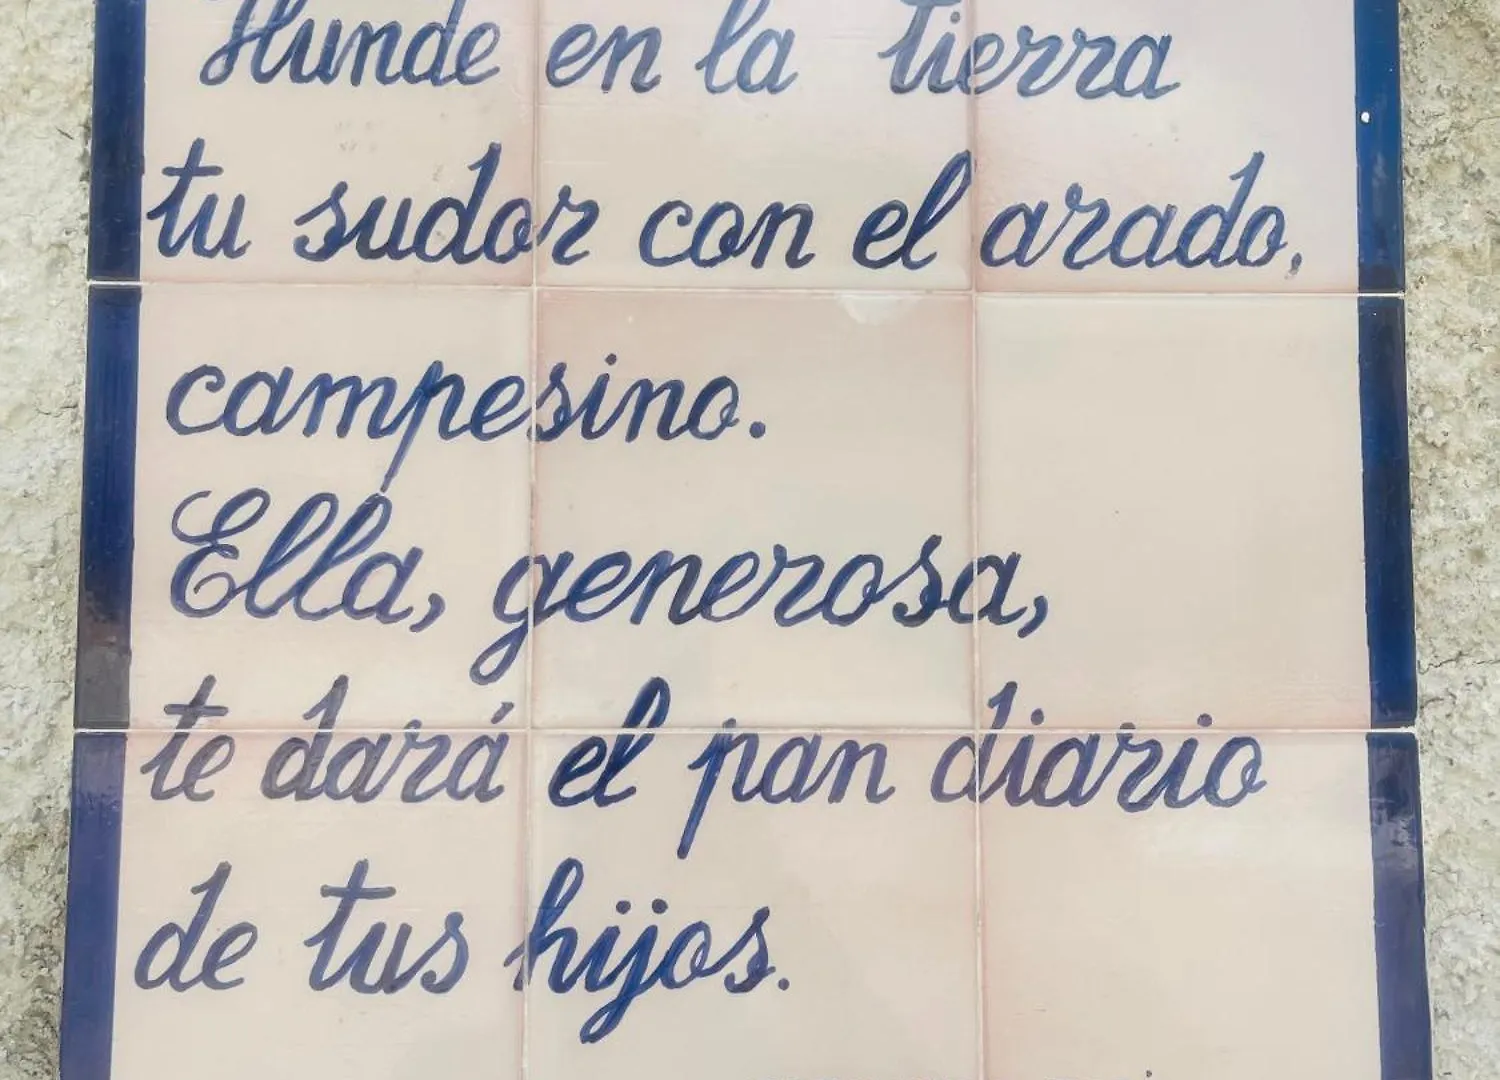 Hunde en la tierra
tu sudor con el arado,
campesino.
Ella, generosa,
te dará el pan diario
de tus hijos.